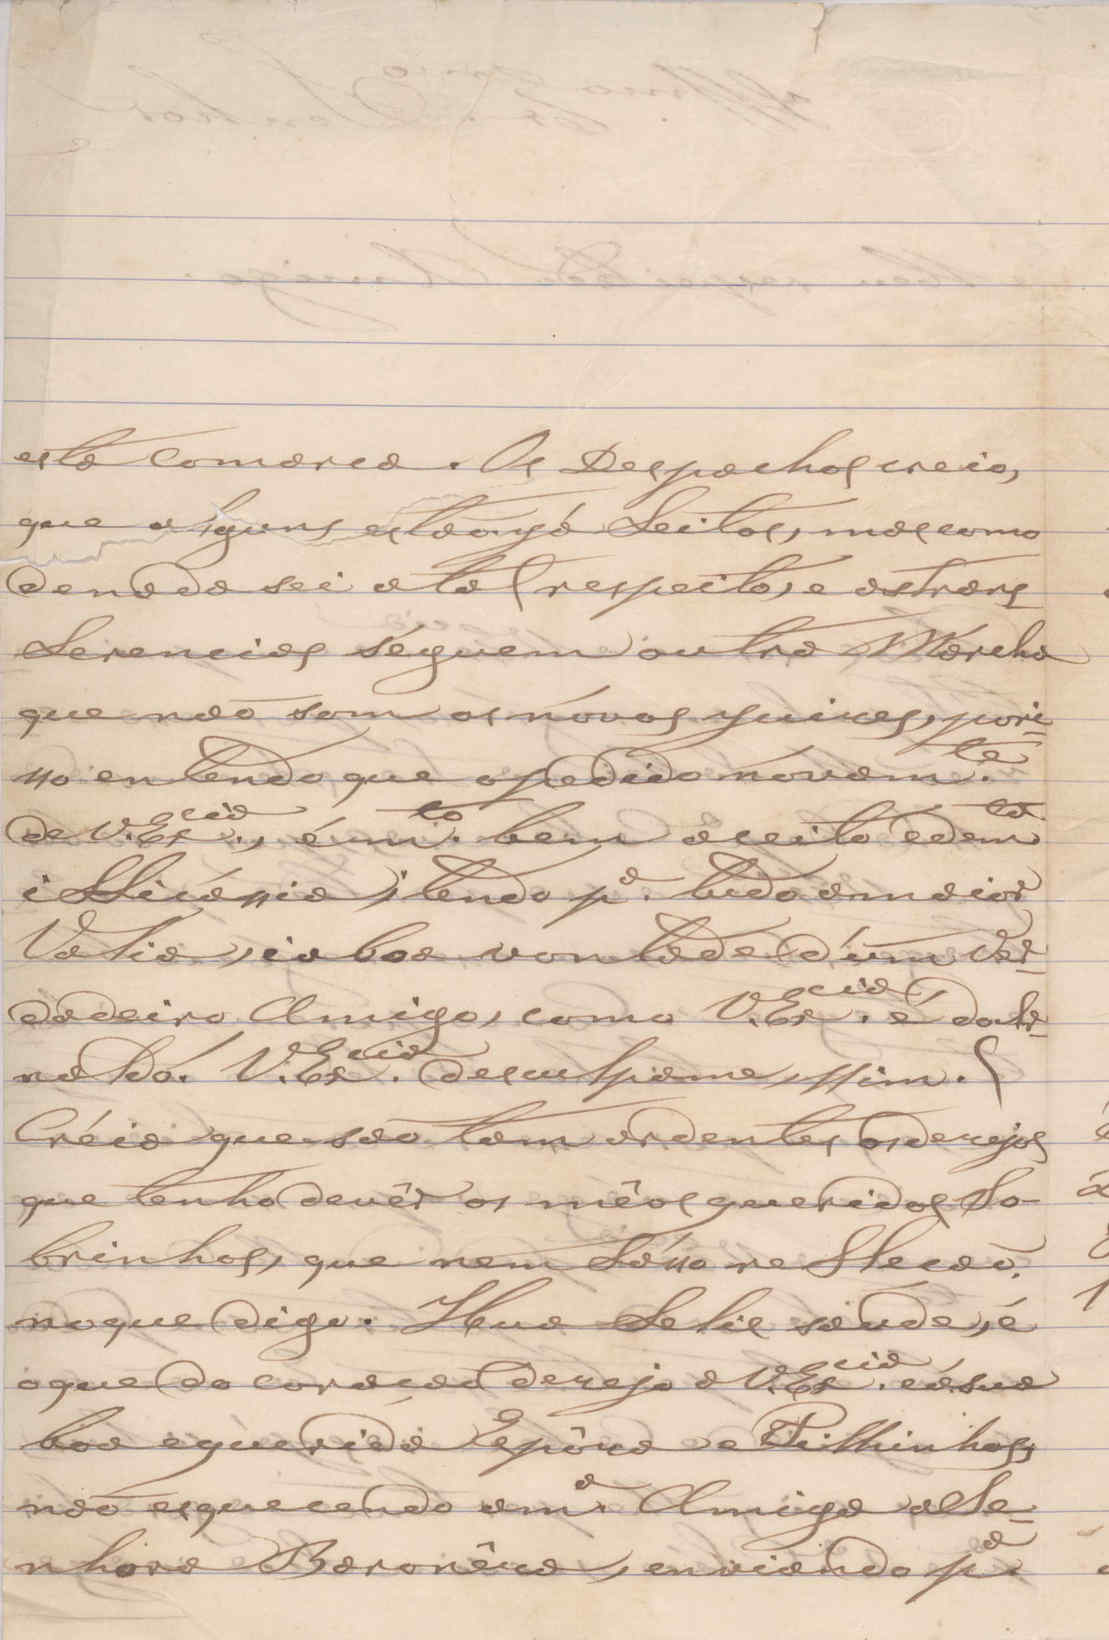 esta Comarca. Os Despachos creio,
que alguns estão já feitos, mas como
de nada sei a tal respeito, e as trans-
ferencias séguem outra Marcha
que não som os nóvos juizes, pori-
sso entendo que o pedido nóvam.te
de V. Ex.cia, é m.to bem aceito e de m.ta
i fficássia, tendo p.a tudo a maior
Valia, i a boa vontade d'úm Ver-
dadeiro Amigo, como V. Ex.cia é do Ar-
naldo. V. Ex.cia desculpame, ssim.
Créia que são tam ardentes os dezejos
que tenho de vêr os mêos queridos So-
brinhos, que nem só no reflecão
no que digo. Hua feliz saúde, é
o que do coração dezejo a V. Ex.cia e á sua
boa e querida Espôza e Filhinhos,
não esquecendo a m.a Amiga a Se-
nhora Baronêza, enviando p.a